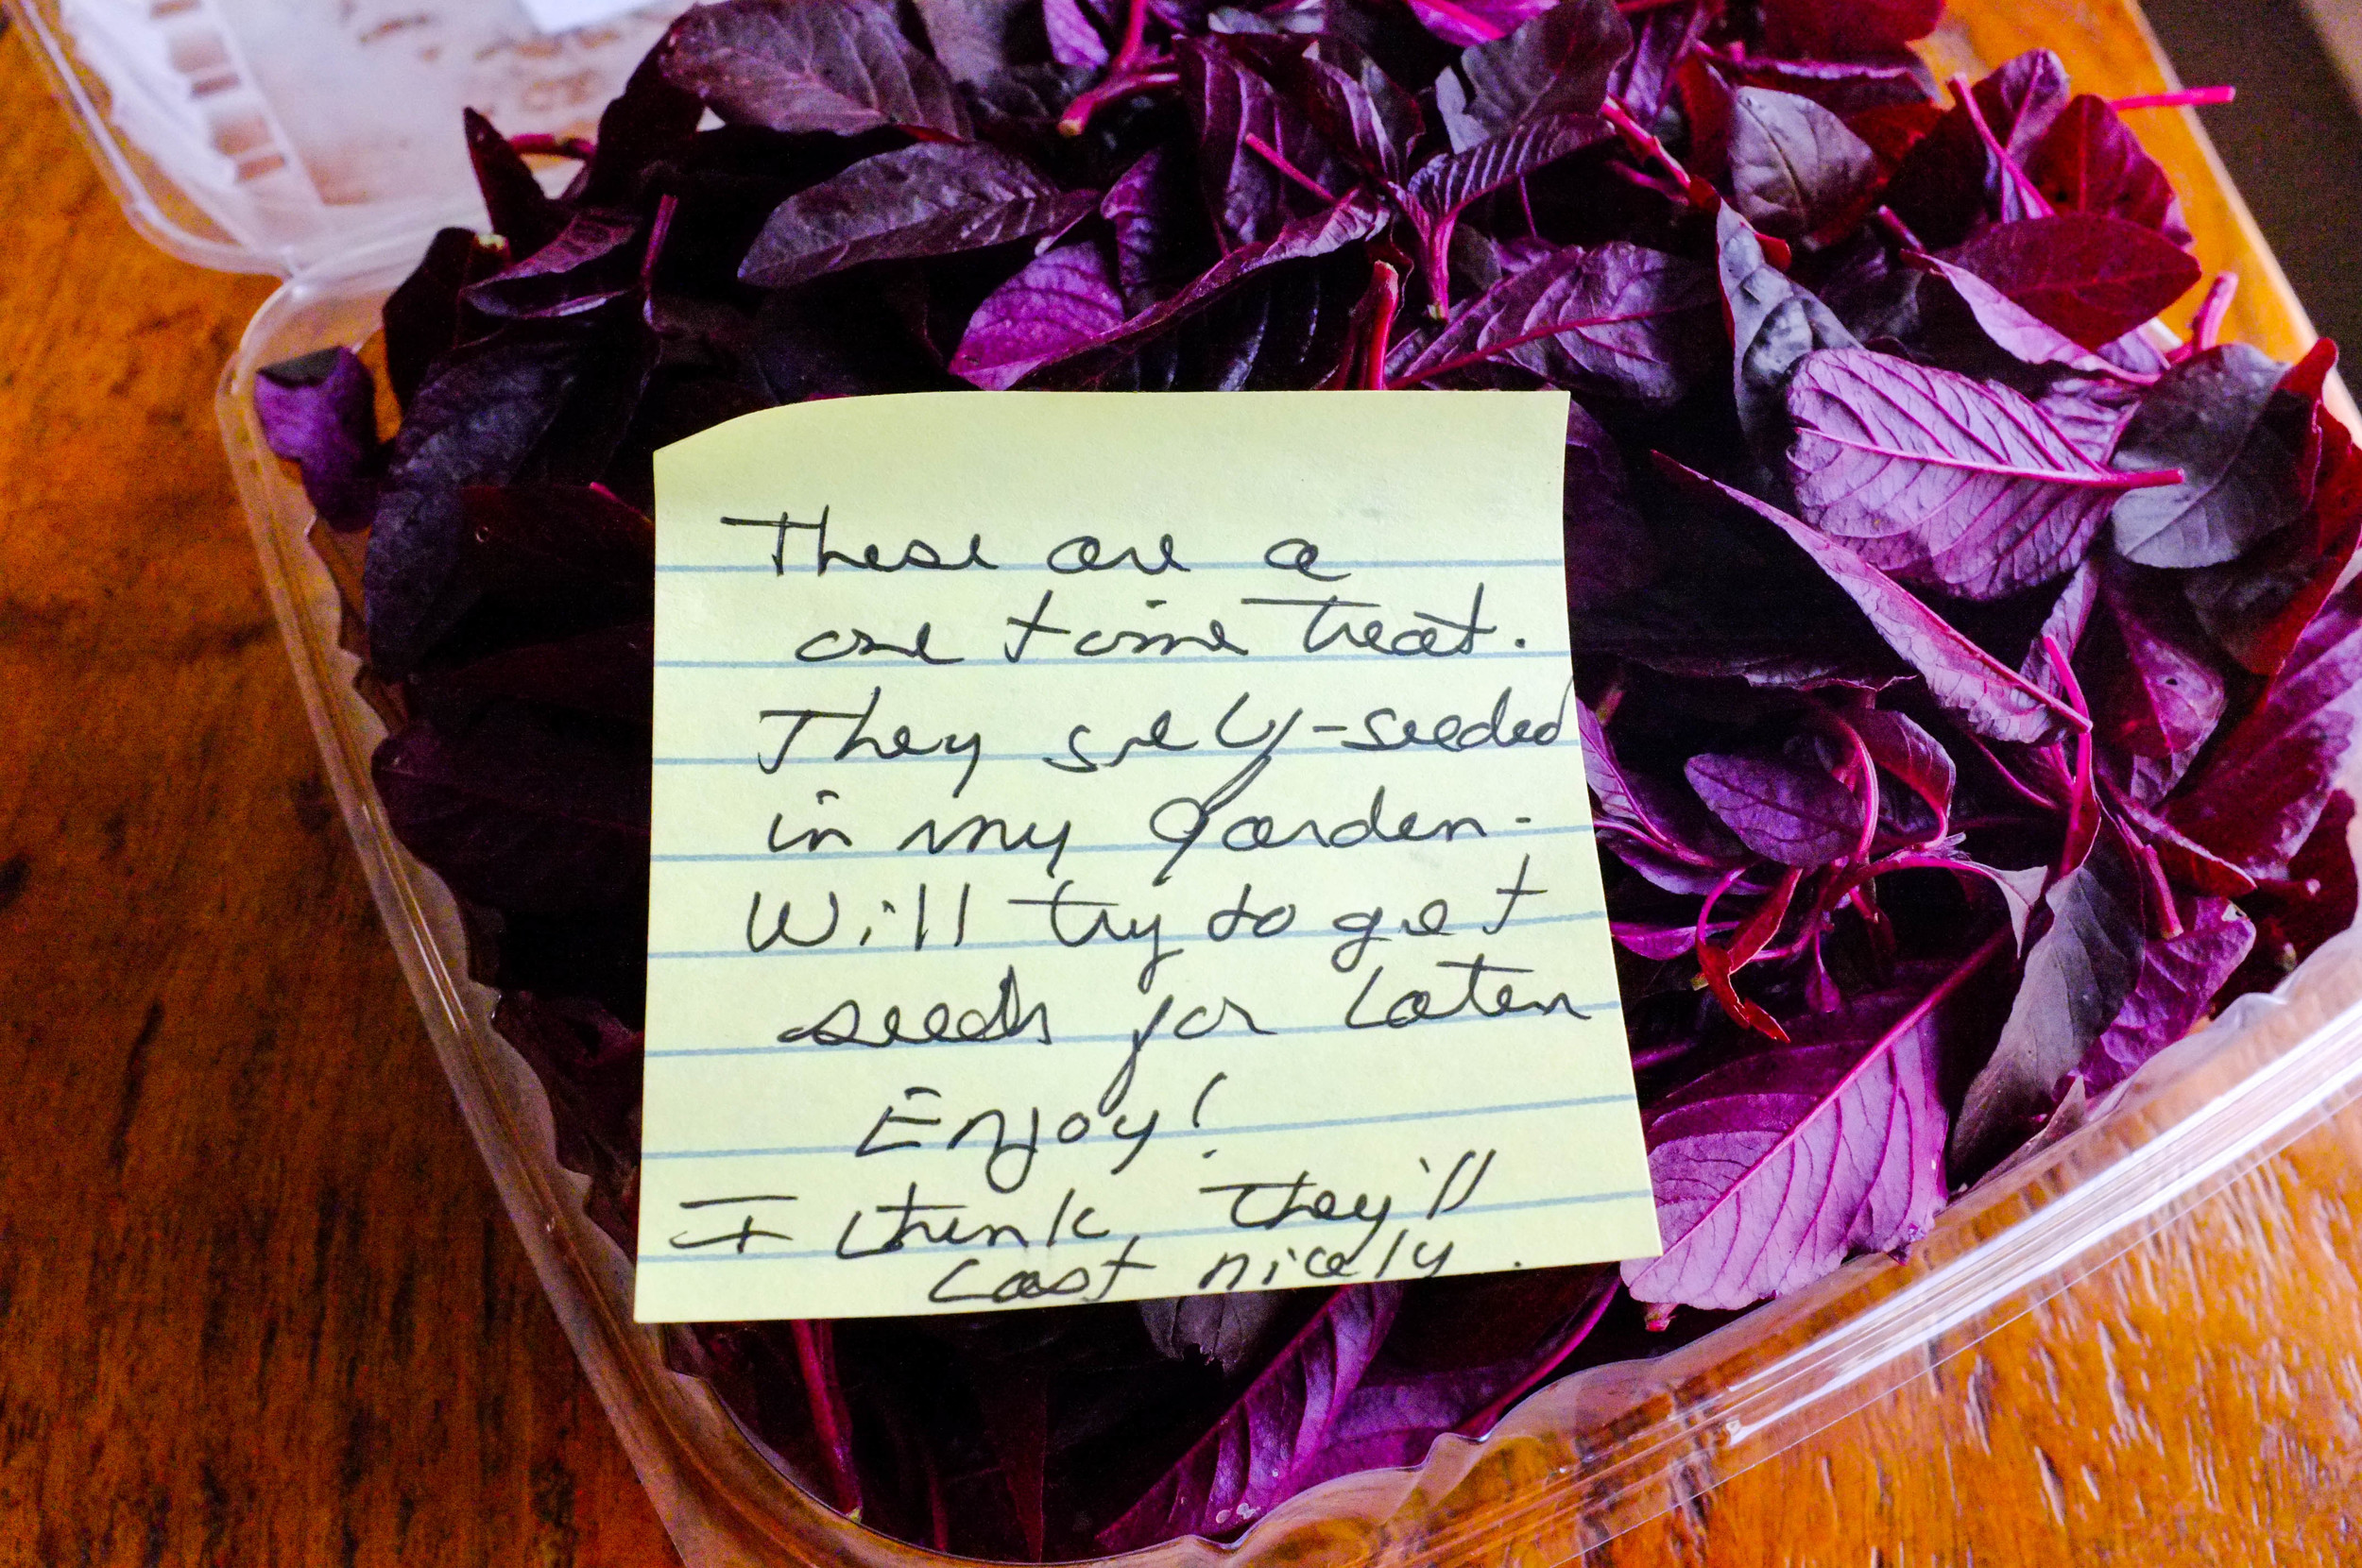 These are a
one time treat.
They self-seeded
in my garden.
Will try to get
seeds for later
Enjoy!
I think they'll
last nicely.